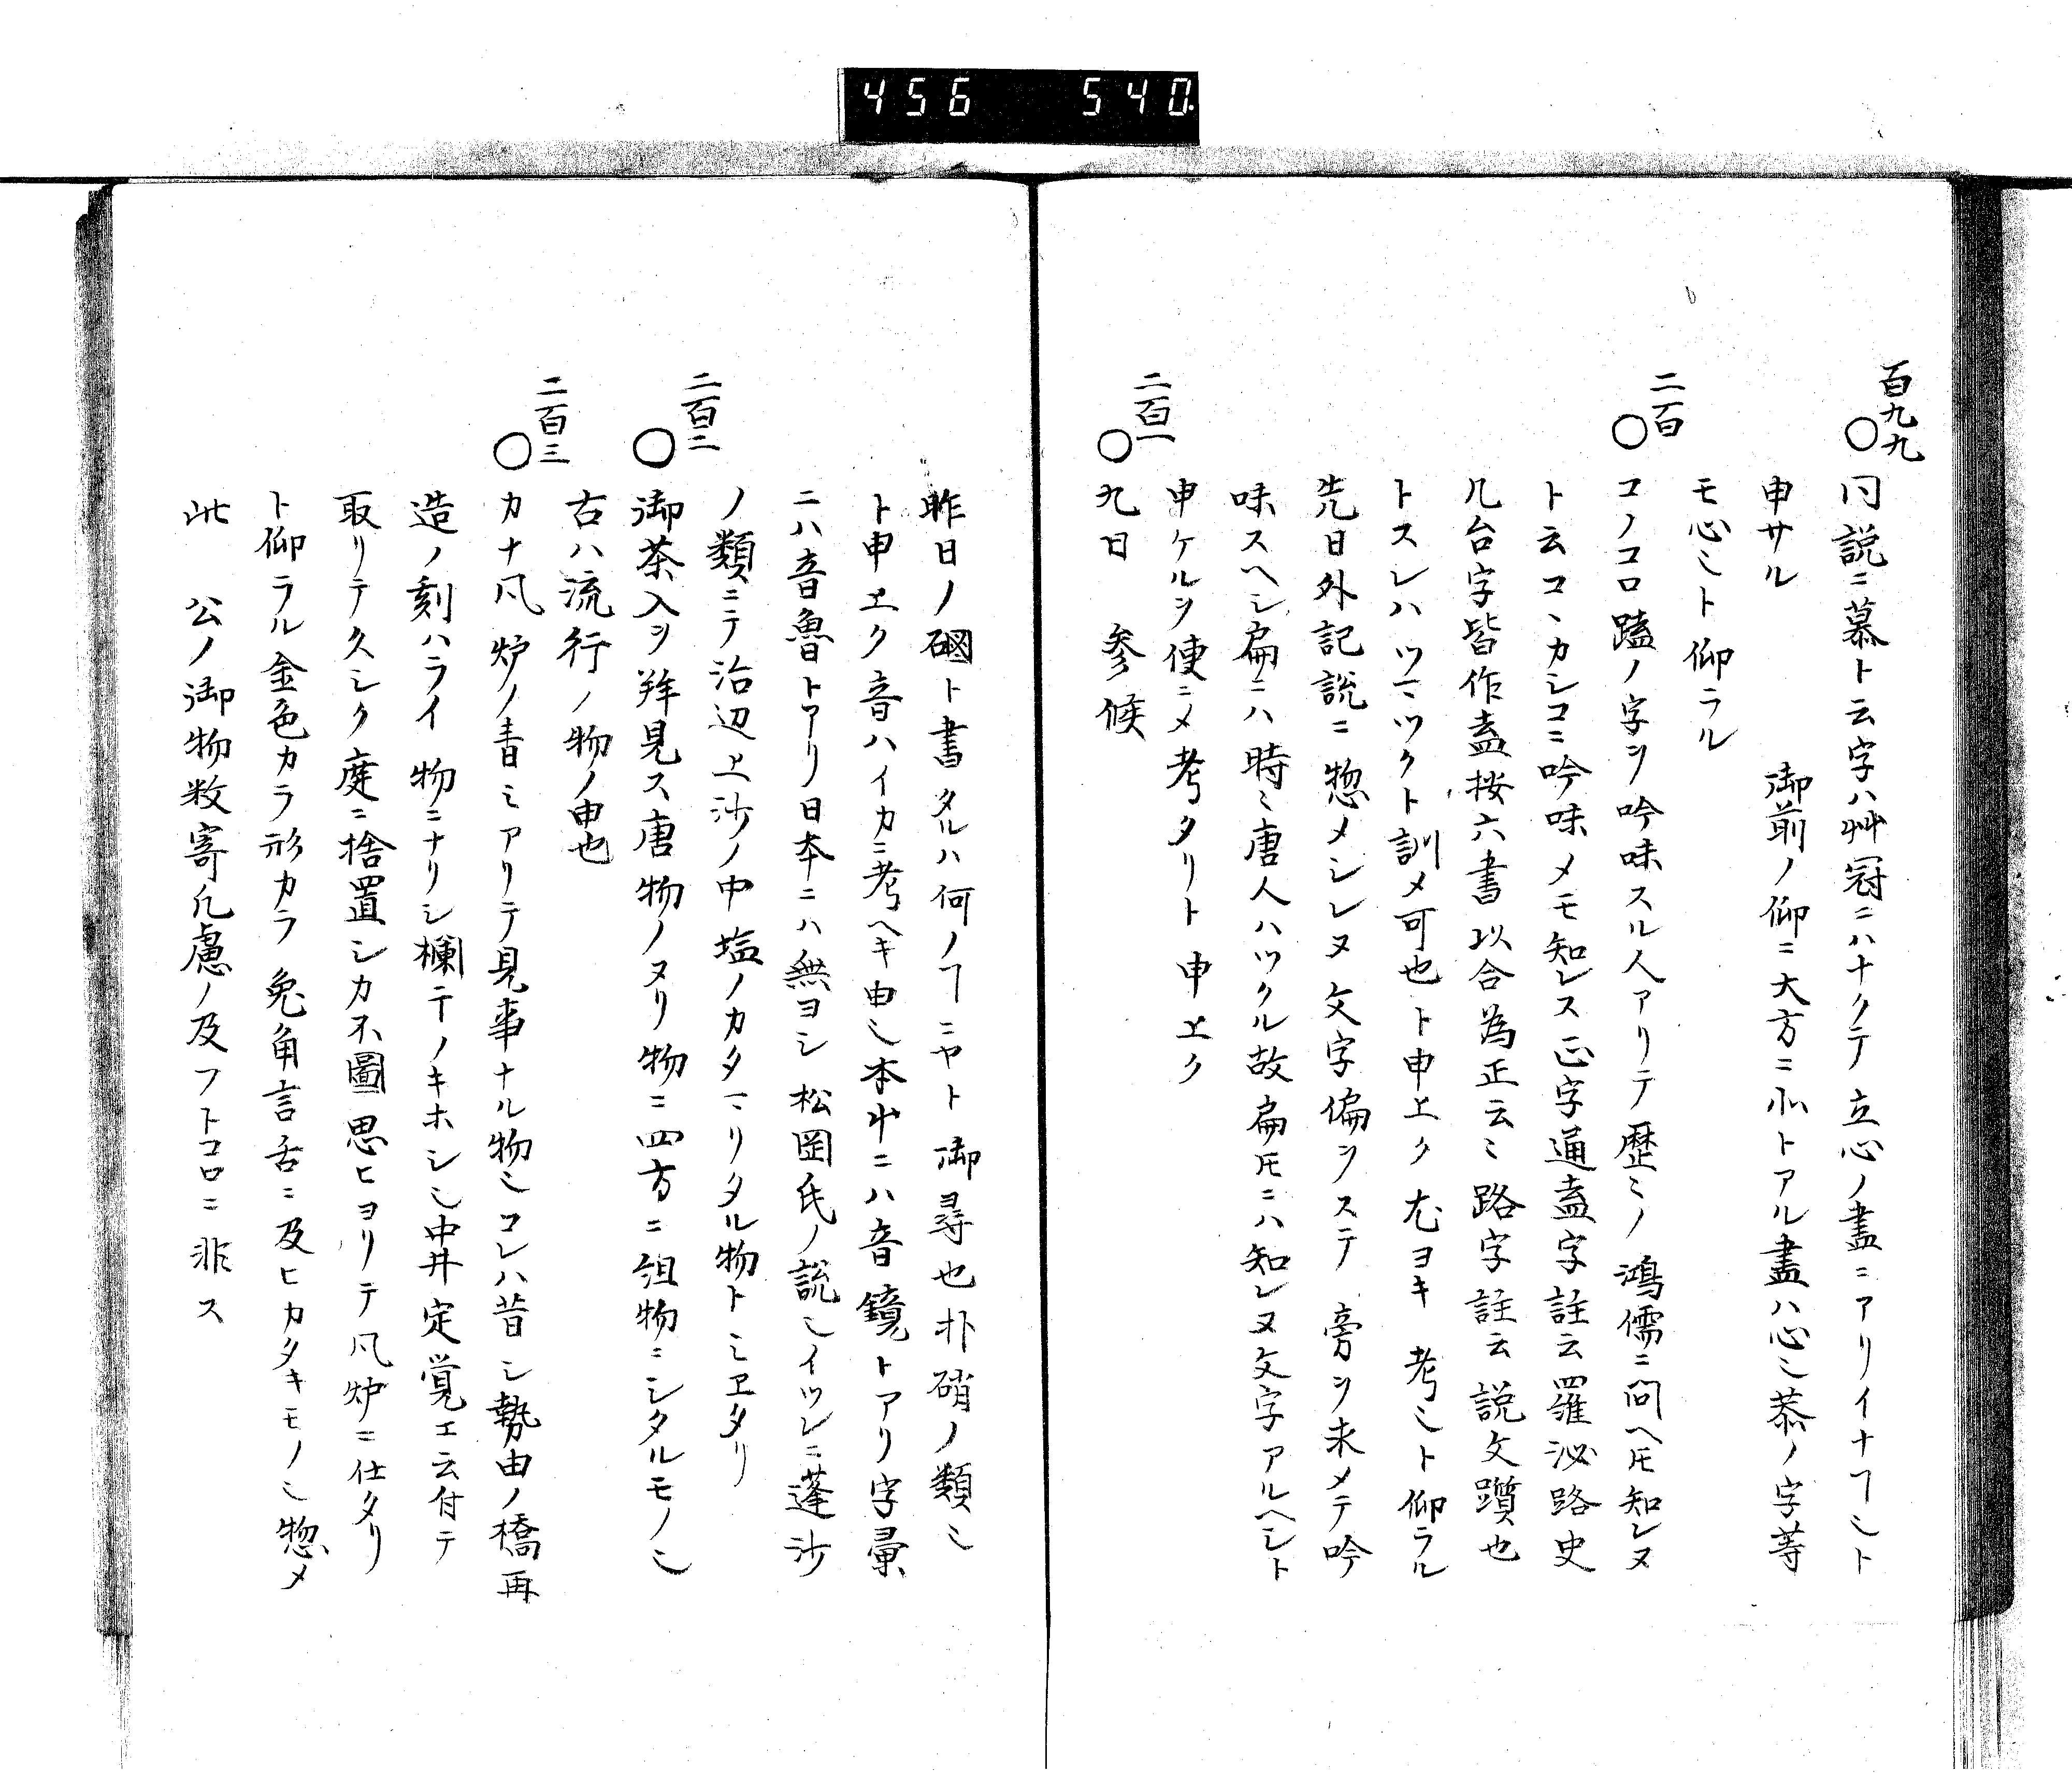 456 540.
百九九
〇同説ニ慕ト云字ハ艸冠ニハナクテ立心ノ盡ニアリイナヿミト
申サル 御前ノ仰ニ大方ニ㣺トアル盡ハ心ミ恭ノ字等
モ心ミト仰ラル
二百
〇コノコロ蹧ノ字ヲ吟味スル人アリテ歴ミノ鴻儒ニ問ヘ𪜈知レヌ
ト云コヽカシコニ吟味メモ知レス正字通盍字註云羅泌路史
凡台字皆作盍按六書以合為正云ミ路字註云説文躓也
トスレハツマツクト訓メ可也ト申上ク尤ヨキ考ミト仰ラル
先日外記説ニ惣メシレヌ文字偏ヲステ旁ヲ求メテ吟
味スヘシ扁ニハ時ミ唐人ハツクル故扁𪜈ニハ知レヌ文字アルヘシト
申ケルヲ便ニメ考タリト申上ク
二百一
〇九日 参候
昨日ノ硇ト書タルハ何ノヿニヤト御尋也朴硝ノ類ミ
ト申上ク音ハイカニ考ヘキ由ミ本艸ニハ音鐃トアリ字彙
ニハ音魯トアリ日本ニハ無ヨシ松岡氏ノ説ミイツレニ蓬沙
ノ類ニテ沿辺上沙ノ中塩ノカタマリタル物トミヱタリ
二百二
〇御茶入ヲ拜見ス唐物ノヌリ物ニ四方ニ組物ニシタルモノミ
古ハ流行ノ物ノ由也
二百三
〇カナ凬炉ノ青ミアリテ見事ナル物ミコレハ昔シ勢田ノ橋再
造ノ刻ハライ物ニナリシ欄干ノキホシミ中井定覚エ云付テ
取リテ久シク庭ニ捨置シカ不圖思ヒヨリテ凬炉ニ仕タリ
ト仰ラル金色カラ形カラ兔角言舌ニ及ヒカタキモノミ惣メ
此 公ノ御物数寄凡慮ノ及フトコロニ非ス